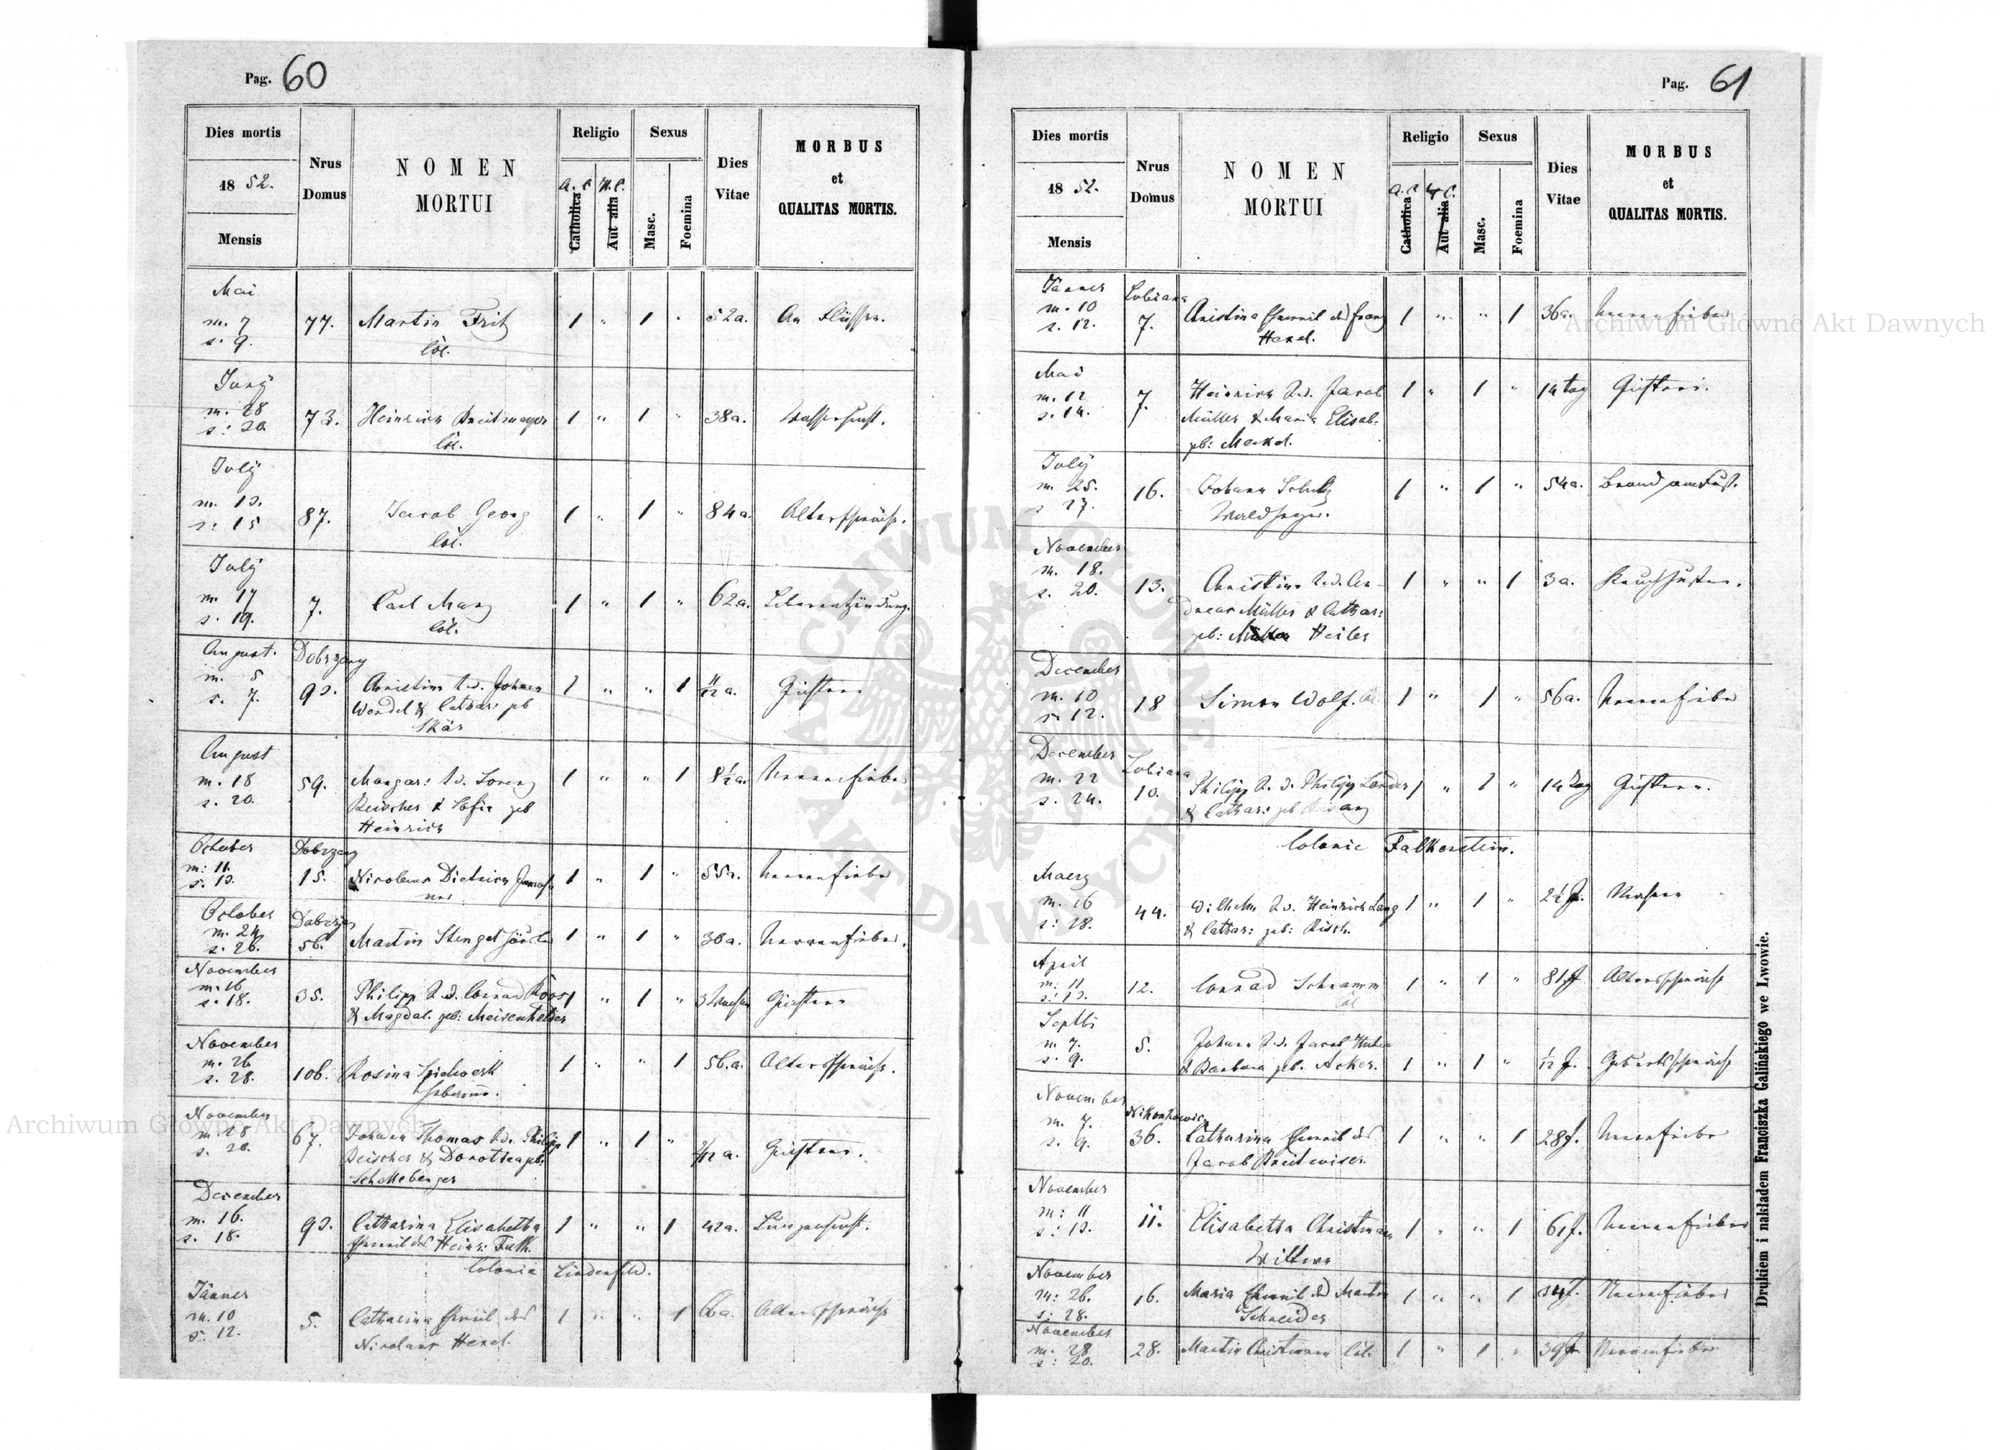 Pag. 60
Dies mortis
1852.
Mensis
Nrus
Domus
NOMEN
MORTUI
Religio
A. C.
Catholica
H. C.
Aut alia
Sexus
Masc.
Foemina
Dies
Vitae
MORBUS
et
QUALITAS MORTIS.
Mai
m. 7
s. 9.
77.
Martin Fritz
Col.
1 " 1 "
52a.
Juny
m. 28
73.
Heinrich Breitmayer
Col.
1 " 1 "
38a.
Wassersucht.
July
m. 13.
s: 15
87.
Jacob Georg
Col.
1 " 1 "
84a.
Altersschwäche.
July
m. 17
s. 19.
7.
Carl Manz
Col.
1 " 1 "
62a.
Leberentzündung.
August.
m. 5
s. 7.
Dobrzany
93.
Christina T. d. Johann
Wendel & Cathar: geb
1 " " 1
11/12 a.
August
m. 18
s. 20.
59.
Margar: T. d. Lorenz
Reischer & Sofia geb
Heinrich
1 " " 1
8½a.
Nervenfieber
October
m: 11.
s. 13.
Dobrzany
15.
Nicolaus Dietrich
1 " 1 "
55a.
Nervenfieber
October
m. 24
s. 26.
56.
Martin Stengel
1 " 1 "
36a.
Nervenfieber.
November
m. 16
s. 18.
35.
Philipp S. d. Conrad Roos
& Magdal. geb: Meisenhelder
1 " 1 "
November
m. 26
s. 28.
106.
Rosina
1 " " 1
56.a.
Altersschwäche.
November
m. 28
67.
Johann Thomas S. d. Philipp
Reischer & Dorothea geb.
1 " 1 "
December
m. 16.
s. 18.
93.
Catharina Elisabetha
Eheweib des Heinr:
1 " " 1
42a.
Lungensucht.
Colonie Lindenfeld.
Jänner
m. 10
s. 12.
5.
Catharina Eheweib des
Nicolaus
1 " " 1
Altersschwäche
Pag. 61
Dies mortis
1852.
Mensis
Nrus
Domus
NOMEN
MORTUI
Religio
A. C.
Catholica
H. C.
Aut alia
Sexus
Masc.
Foemina
Dies
Vitae
MORBUS
et
QUALITAS MORTIS.
Jänner
m. 10
s. 12.
Lubiana
7.
Christina Eheweib des Franz
1 " " 1
36a.
Nervenfieber
Mai
m. 12
s. 14.
7.
Heinrich S. d. Jacob
Müller & Maria Elisab.
geb:
1 " 1 "
14 Tag
July
m. 25.
s 27.
16.
Johann Schulz
1 " 1 "
54a.
Brand am Fuß.
November
m. 18.
s. 20.
13.
Christina T. d. An-
dreas Müller & Cathar:
geb: Heiler
1 " " 1
3a.
Keuchhusten.
December
m. 10
s. 12.
18
Simon Wolf. Col
1 " 1 "
56a.
Nervenfieber
December
m. 22
s. 24.
Lubiana
10.
Philipp S. d. Philipp Lander
& Cathar: geb
1 " 1 "
14 Tag
Colonie Falkenstein.
Maerz
m. 16
s: 18.
44.
Wilhelm S. d. Heinrich Lang
& Cathar: geb:
1 " 1 "
2½ J.
April
m. 11
s: 13.
12.
Conrad Schramm
Col
1 " 1 "
81 J
Altersschwäche
Septb
m. 7.
s. 9.
5.
Johann S. d. Jacob Huber
& Barbara geb. Acker.
1 " 1 "
1/12 J.
Geburtsschwäche
November
m. 7.
s. 9.
36.
Catharina Eheweib des
Jacob Breitwieser.
1 " " 1
28 J.
Nervenfieber
November
m: 11
s: 13.
11.
Elisabetha Christmann
Wittwe
1 " " 1
61 J.
Nervenfieber
November
m: 26.
s: 28.
16.
Maria Eheweib des Martin
Schneider
1 " " 1
Nervenfieber
November
m. 28
28.
Martin Christmann Col.
1 " 1 "
39 J
Nervenfieber
Drukiem i nakładem Franciszka Galińskiego we Lwowie.
Archiwum Główne Akt Dawnych
Archiwum Główne Akt Dawnych
ARCHIWUM GŁÓWNE AKT DAWNYCH